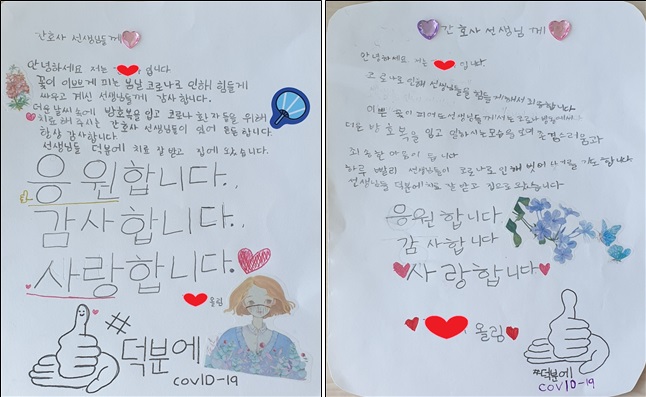 간호사 선생님들께
안녕하세요 저는 입니다
꽃이 이쁘게 피는 봄날 코로나로 인해 힘들게
싸우고 계신 선생님들께 감사 합니다.
더운 날씨 속에 방호복을 입고 코로나 환자들을 위해
치료해 주시는 간호사 선생님들이 있어 든든 합니다
항상 감사합니다
선생님들 덕분에 치료 잘 받고 집에 갔습니다.
응원합니다..
감사합니다..
사랑합니다.
올림
#덕분에
COVID-19
간호사 선생님 께
안녕하세요 저는 입니다
코로나로 인해 선생님들을 힘들게 해서 죄송합니다
이쁜 꽃이 피어도 선생님들께서는
더운 방호복을 입고 일하시는 모습을 보면 존경스러움과
죄송할 마음이 듭니다
하루 빨리 선생님들이 코로나로 인해 벗어나시길 기도합니다
선생님들 덕분에 치료 잘 받고 집으로 왔습니다
응원합니다
감사합니다
사랑합니다
올림
#덕분에
COVID-19